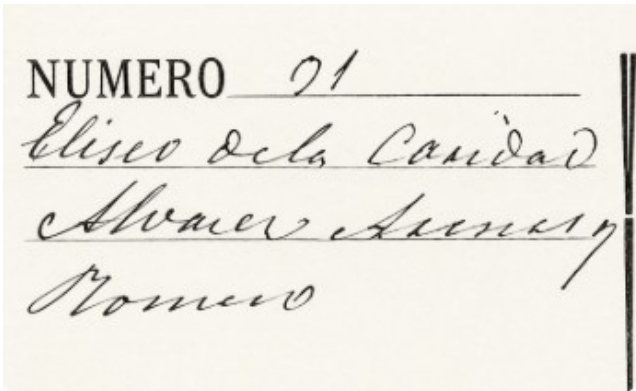 NUMERO 91
Eliseo de la Caridad
Alvarez Arenas y
Romero